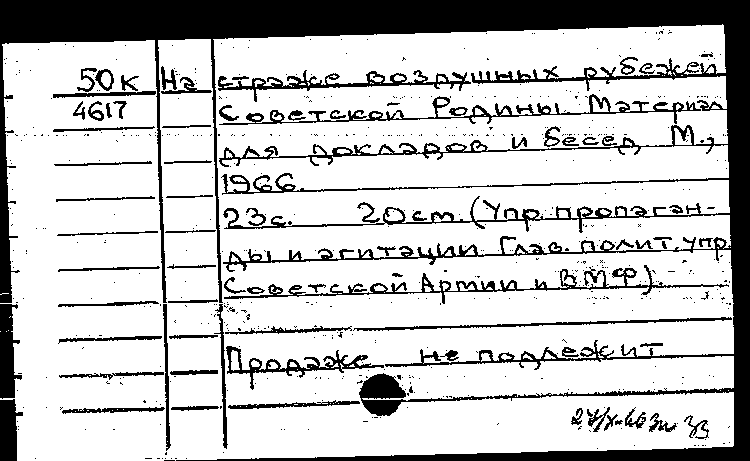 50к На страже воздушных рубежей
4617 Советской Родины. Материал
для докладов и бесед М.,
1966.
23с. 20см. (Упр. пропаган-
ды и агитации Глав. полит. упр.
Советской Армии и ВМФ).
Продаже не подлежит